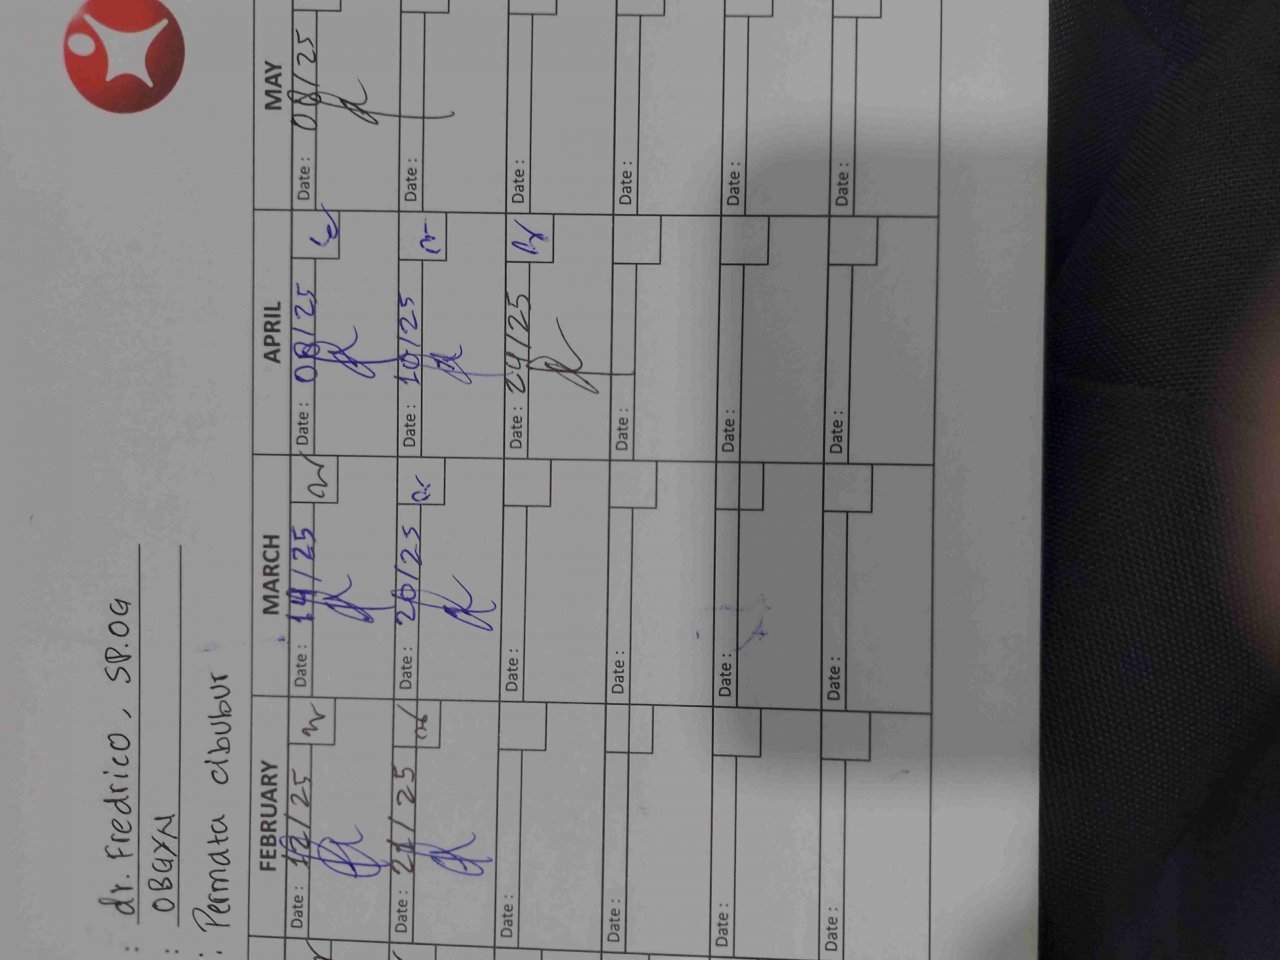 : dr. Fredrico, SP.OG
: OBGYN
: Permata cibubur
FEBRUARY MARCH APRIL MAY
Date : 12/25 Date : 14/25 Date : 08/25 Date : 08/25
Date : 21/25 Date : 20/25 Date : 10/25 Date :
Date : Date : Date : 24/25 Date :
Date : Date : Date : Date :
Date : Date : Date : Date :
Date : Date : Date : Date :